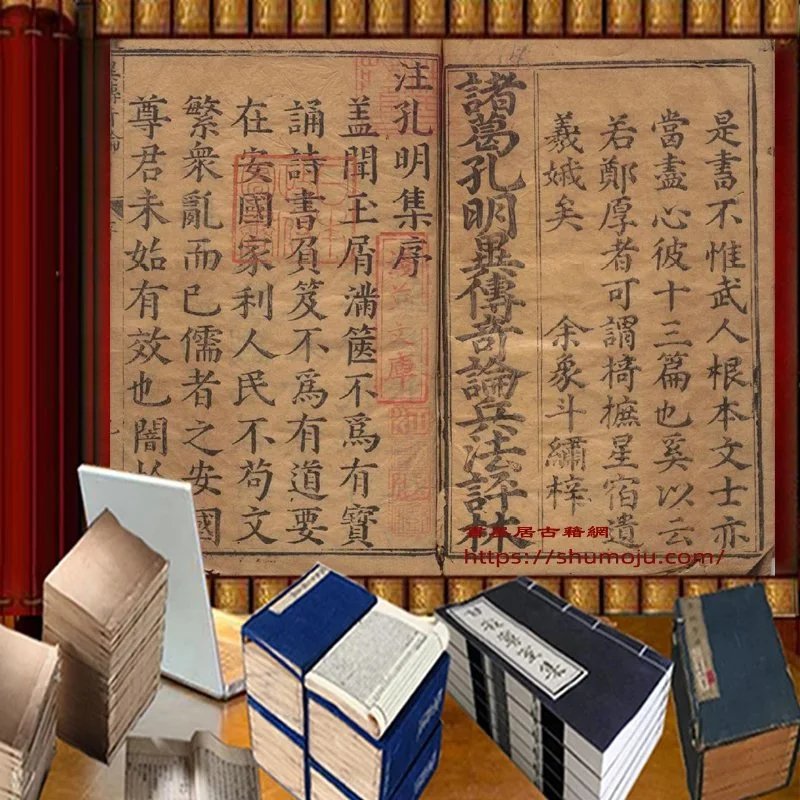 是書不惟武人根本文士亦
當盡心彼十三篇也奚以云
若鄭厚者可謂掎摭星宿遺
羲娥矣 余象斗繡梓
諸葛孔明異傳奇論兵法評林
注孔明集序
蓋聞玉屑滿篋不為有寶
誦詩書負笈不為有道要
在安國家利人民不苟文
繁衆亂而已儒者之安國
尊君未始有效也闇於
書墨居古籍網
https://shumoju.com/